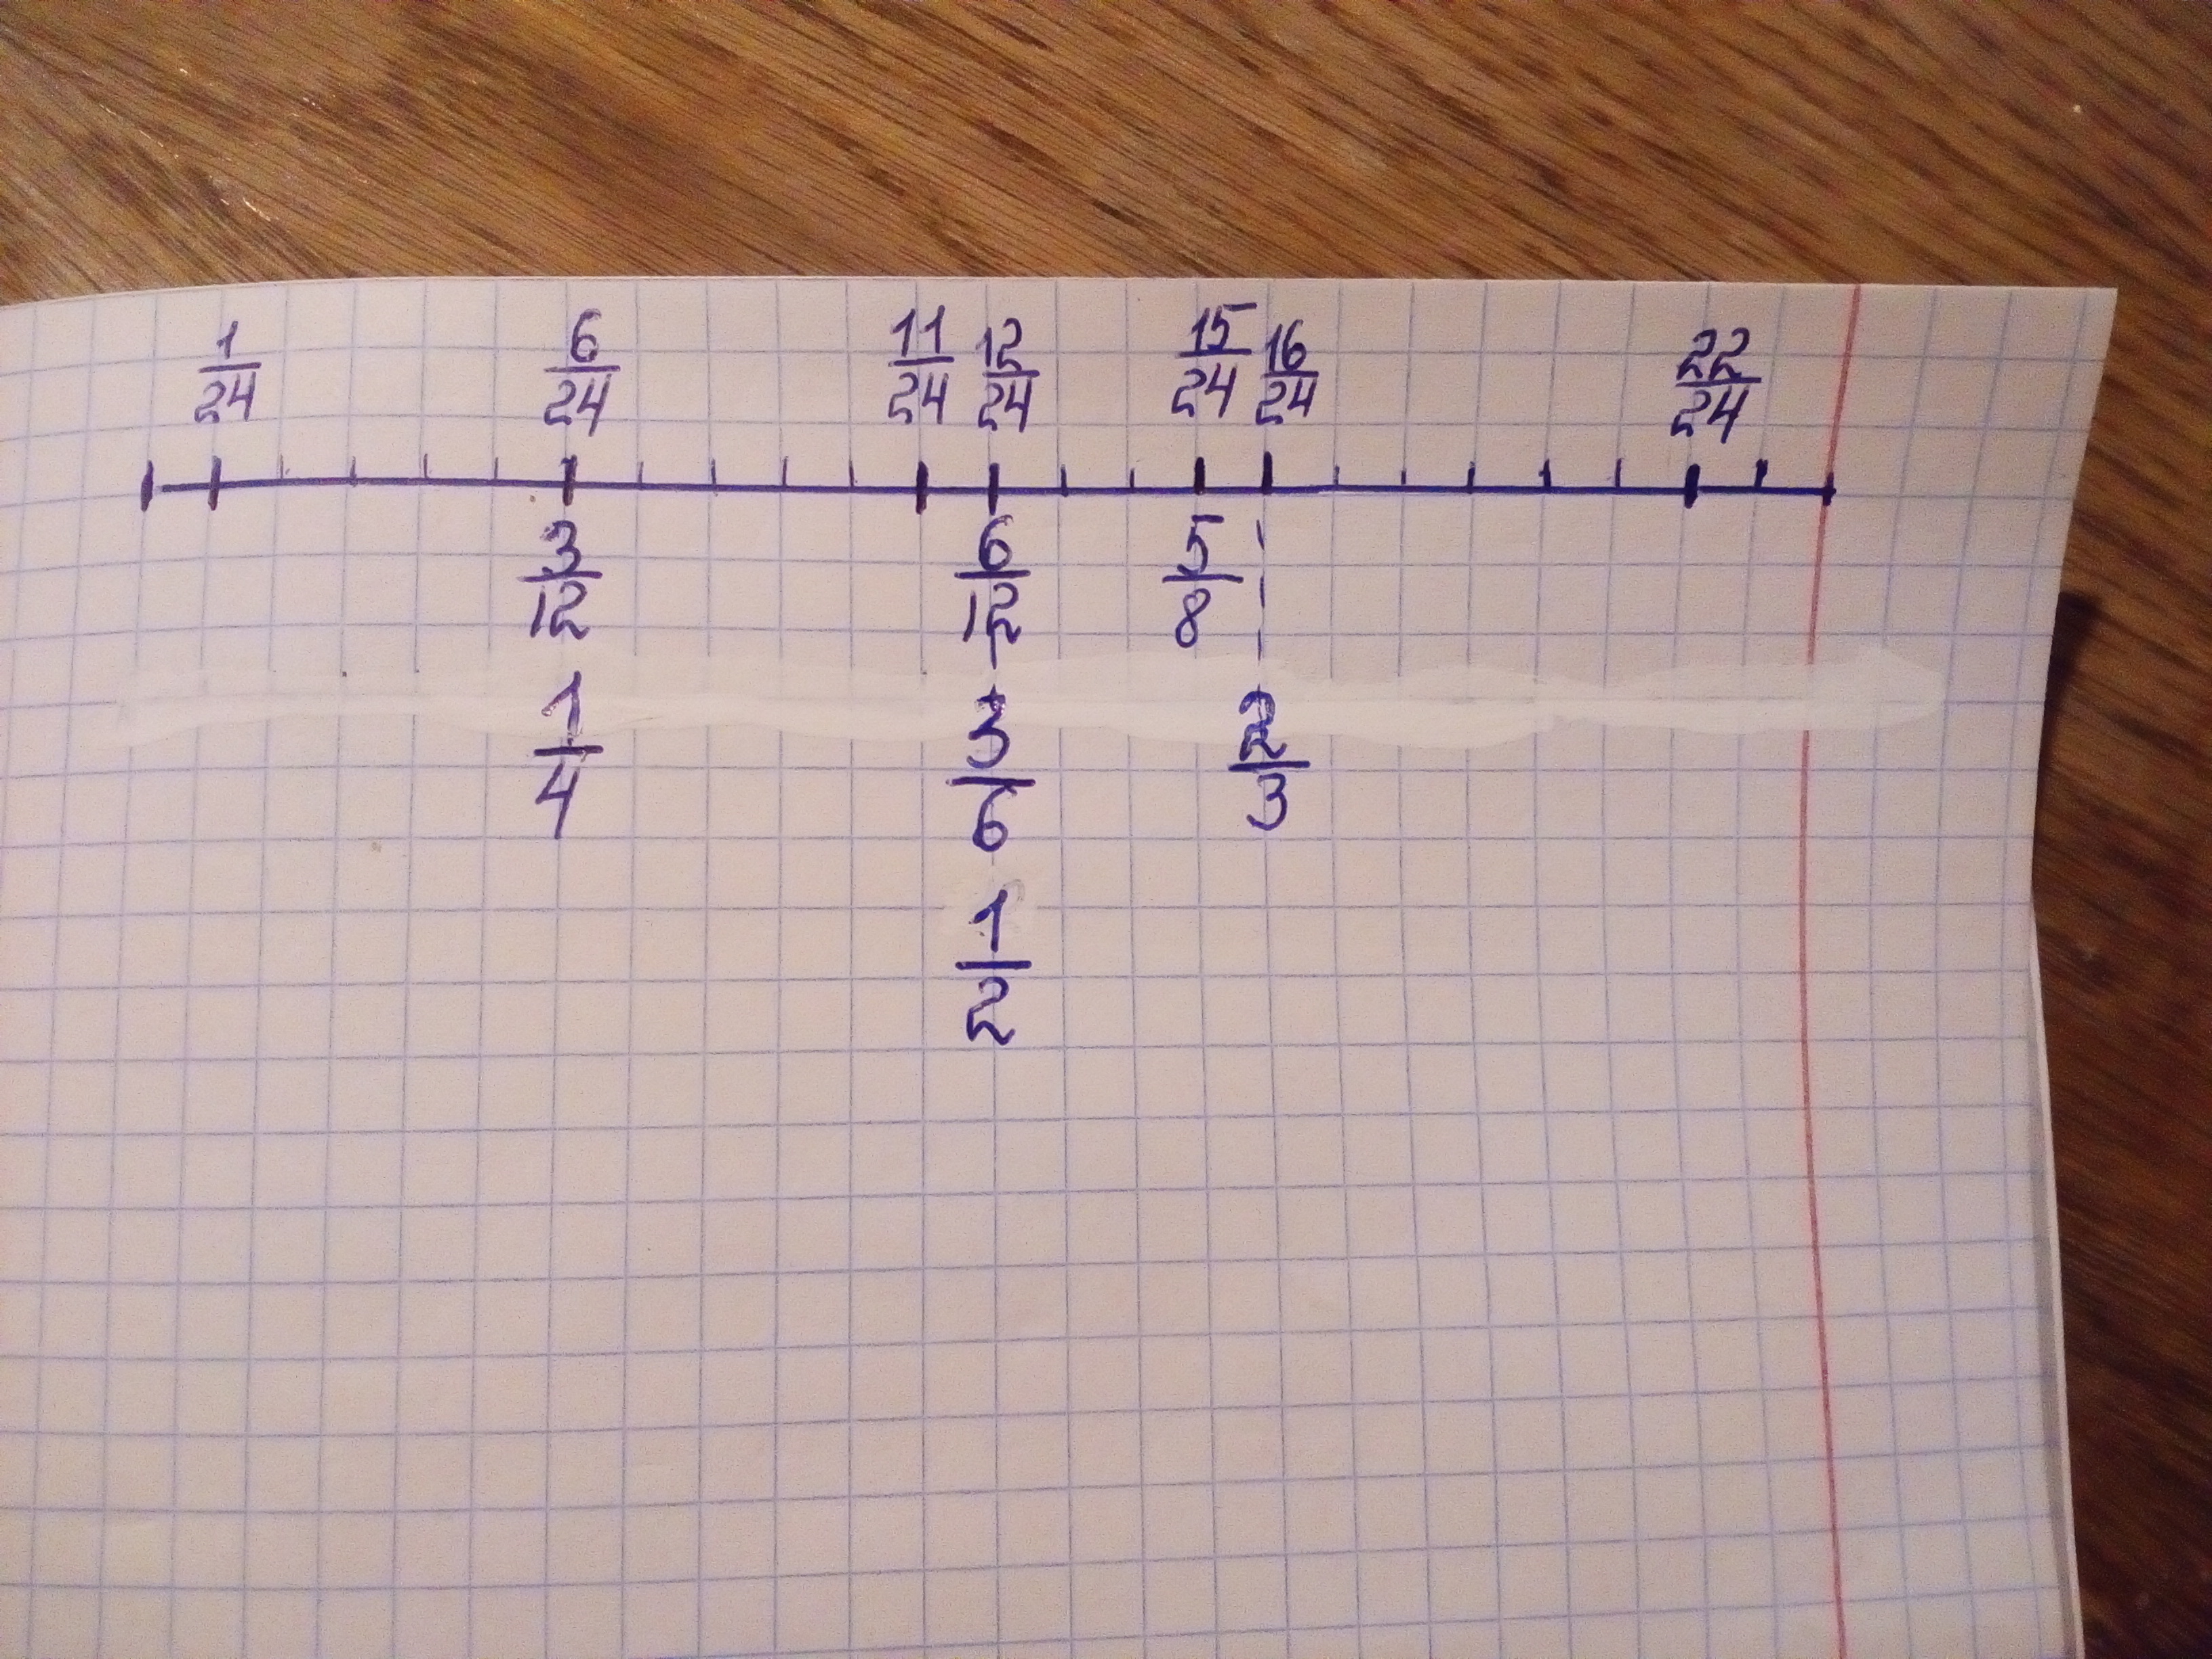 1/24 6/24 11/24 12/24 15/24 16/24 22/24
3/12 6/12 5/8
1/4 3/6 2/3
1/2